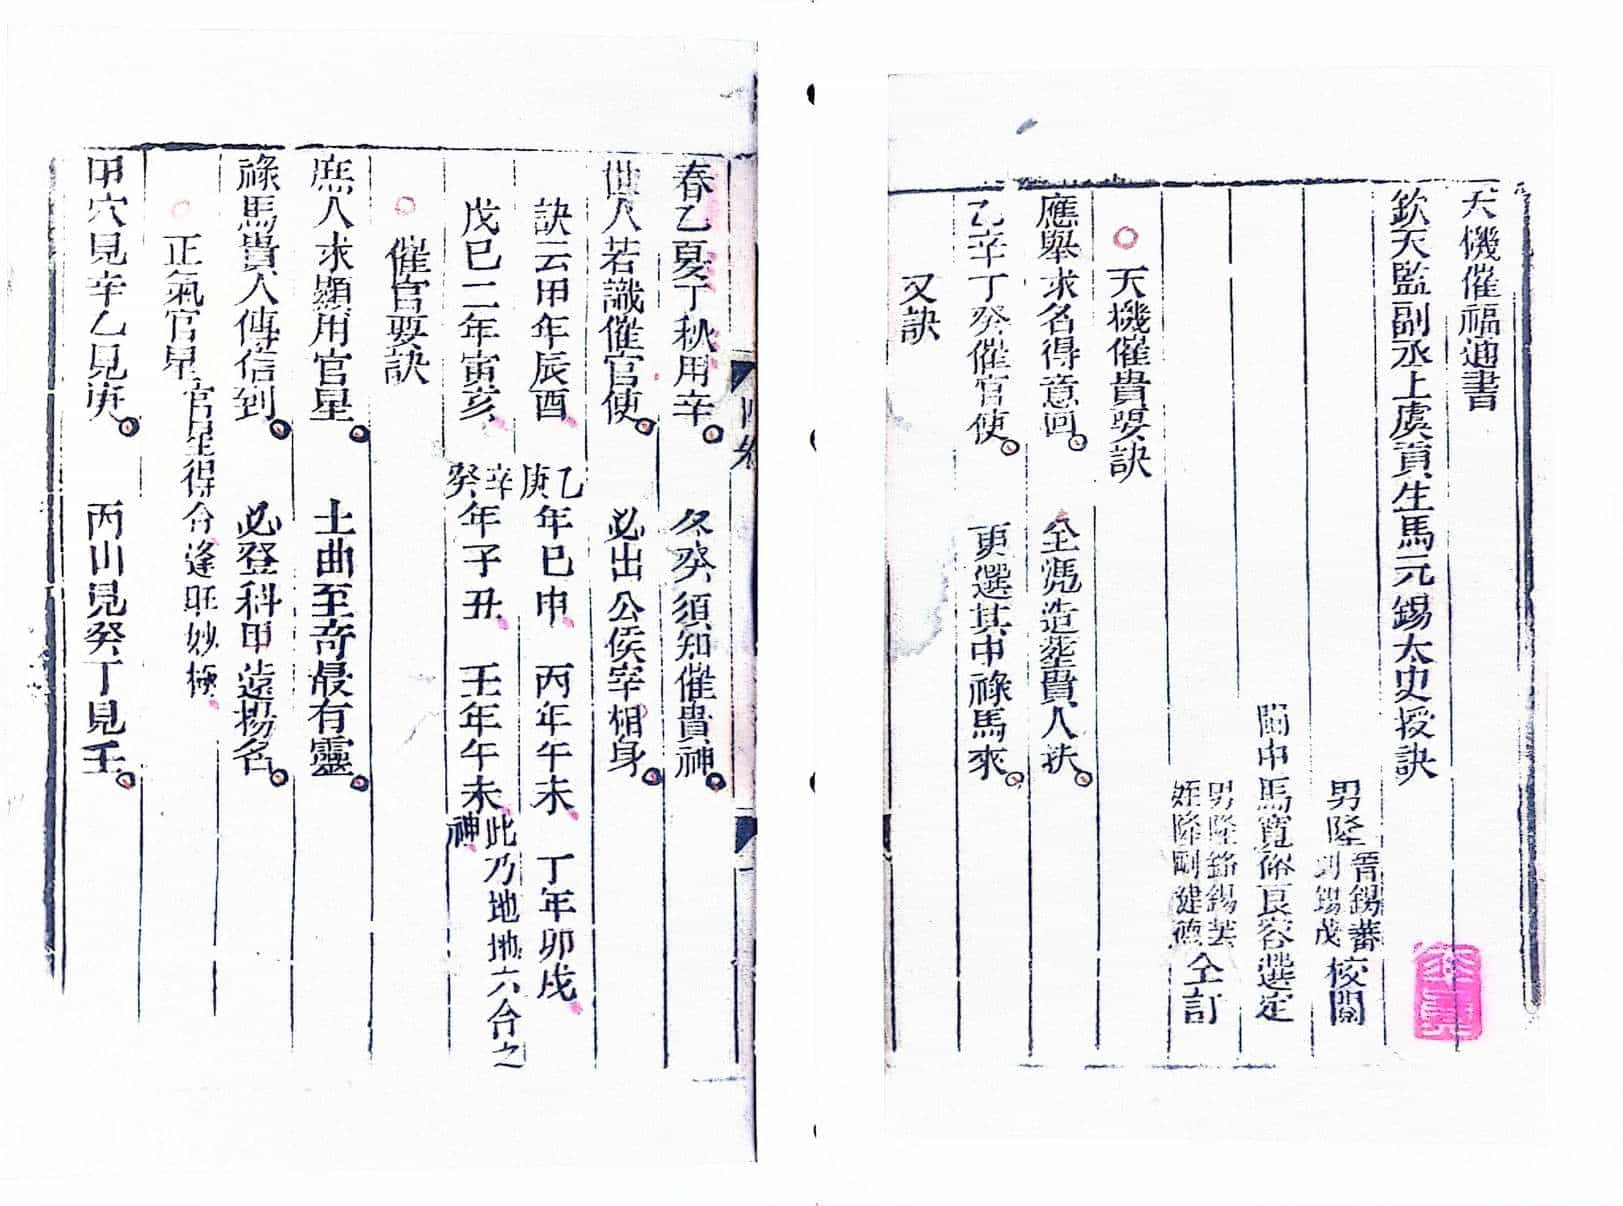 天機催福通書
欽天監副丞上虞貢生馬元錫太史授訣
男陞晉錫蕃 錫茂 校閱
閩中馬寬裕良容選定
男陞路錫 姪陞剛健德 仝訂
天機催貴要訣
應舉求名得意回 全凴造塟貴人扶
乙辛丁癸催官使 更選其中祿馬來
又訣
春乙夏丁秋用辛 冬癸須知催貴神
世人若識催官使 必出公侯宰相身
訣云甲年辰酉 乙庚年巳申 丙年午未 丁年卯戌
戊巳二年寅亥 辛癸年子丑 壬年午未 此乃地地六合之神
催官要訣
庶人求顯用官星 土曲至奇最有靈
祿馬貴人傳信到 必登科甲遠揚名
正氣官早 官星得合逢旺妙極
甲穴見辛乙見庚 丙山見癸丁見壬